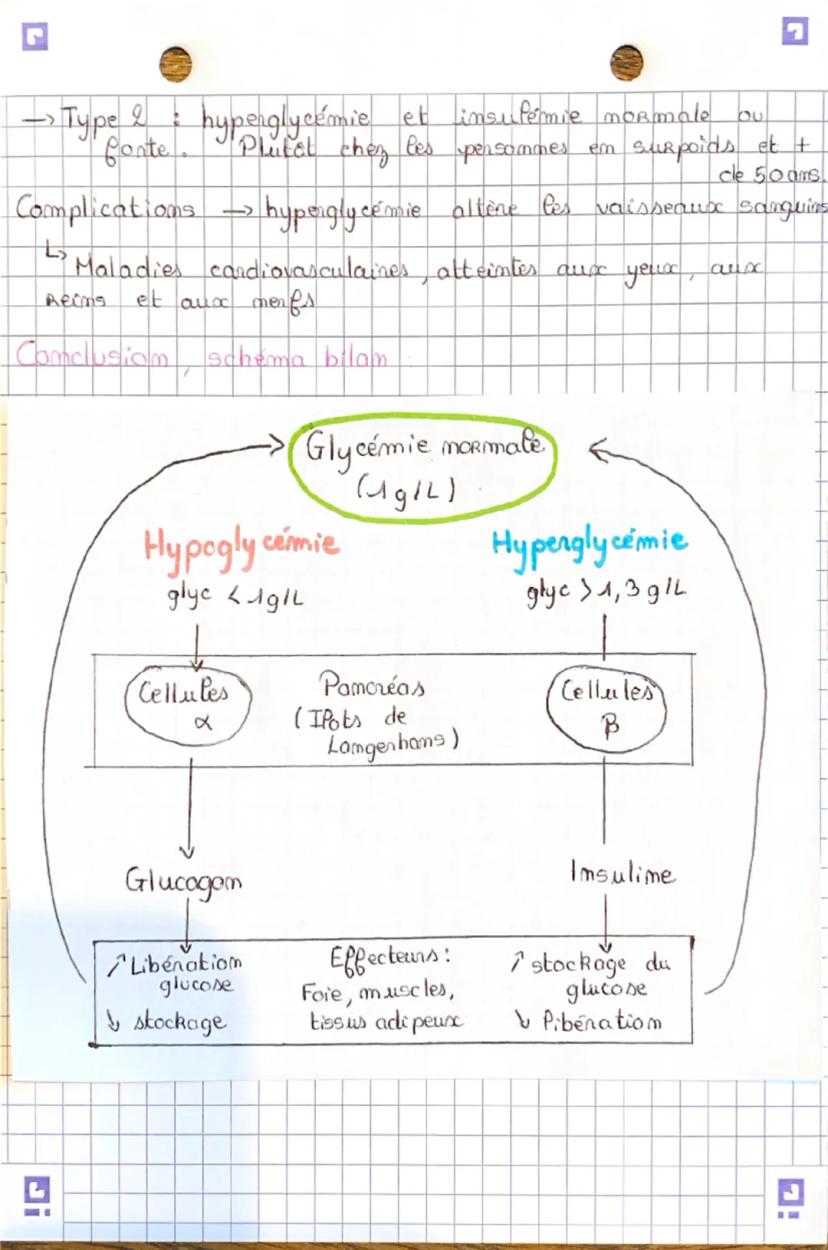 → Type 2 : hyperglycémie et insulémie normale ou
forte. Plutôt chez les personnes en surpoids et +
de 50 ans.
Complications → hyperglycémie altère les vaisseaux sanguins
↳ Maladies cardiovasculaires, atteintes aux yeux, aux
reins et aux nerfs
Conclusion, schéma bilan
Glycémie normale
(1 g/L)
Hypoglycémie
glyc < 1g/L
Hyperglycémie
glyc > 1,3 g/L
Cellules
α
Pancréas
(Ilots de
Langerhans)
Cellules
β
Glucagon
Insuline
↗ Libération
glucose
↘ stockage
Effecteurs :
Foie, muscles,
tissus adipeux
↗ stockage du
glucose
↘ libération